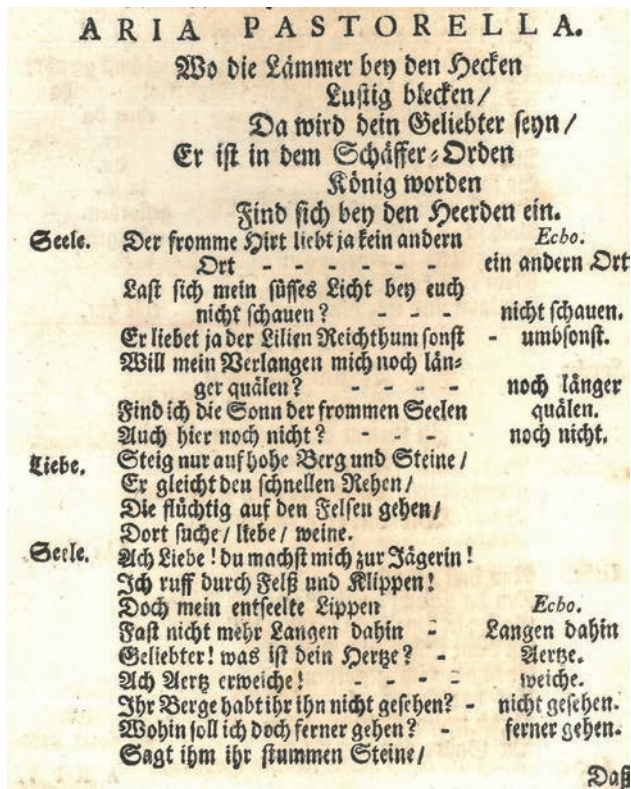 ARIA PASTORELLA.
Wo die Lämmer bey den Hecken
Lustig blecken/
Da wird dein Geliebter seyn/
Er ist in dem Schäffer-Orden
König worden
Find sich bey den Heerden ein.
Seele. Der fromme Hirt liebt ja kein andern Echo.
Ort - - - - - - ein andern Ort
Last sich mein süsses Licht bey euch
nicht schauen? - - - nicht schauen.
Er liebet ja der Lilien Reichthum sonst - umbsonst.
Will mein Verlangen mich noch län-
ger quälen? - - - - noch länger
Find ich die Sonn der frommen Seelen quälen.
Auch hier noch nicht? - - - noch nicht.
Liebe. Steig nur auf hohe Berg und Steine/
Er gleicht den schnellen Rehen/
Die flüchtig auf den Felsen gehen/
Dort suche/ liebe/ weine.
Seele. Ach Liebe! du machst mich zur Jägerin!
Ich ruff durch Felß und Klippen!
Doch mein entseelte Lippen Echo.
Fast nicht mehr Langen dahin - Langen dahin
Geliebter! was ist dein Hertze? - Aertze.
Ach Aertz erweiche! - - - - weiche.
Ihr Berge habt ihr ihn nicht gesehen? - nicht gesehen.
Wohin soll ich doch ferner gehen? - ferner gehen.
Sagt ihm ihr stummen Steine/
Daß